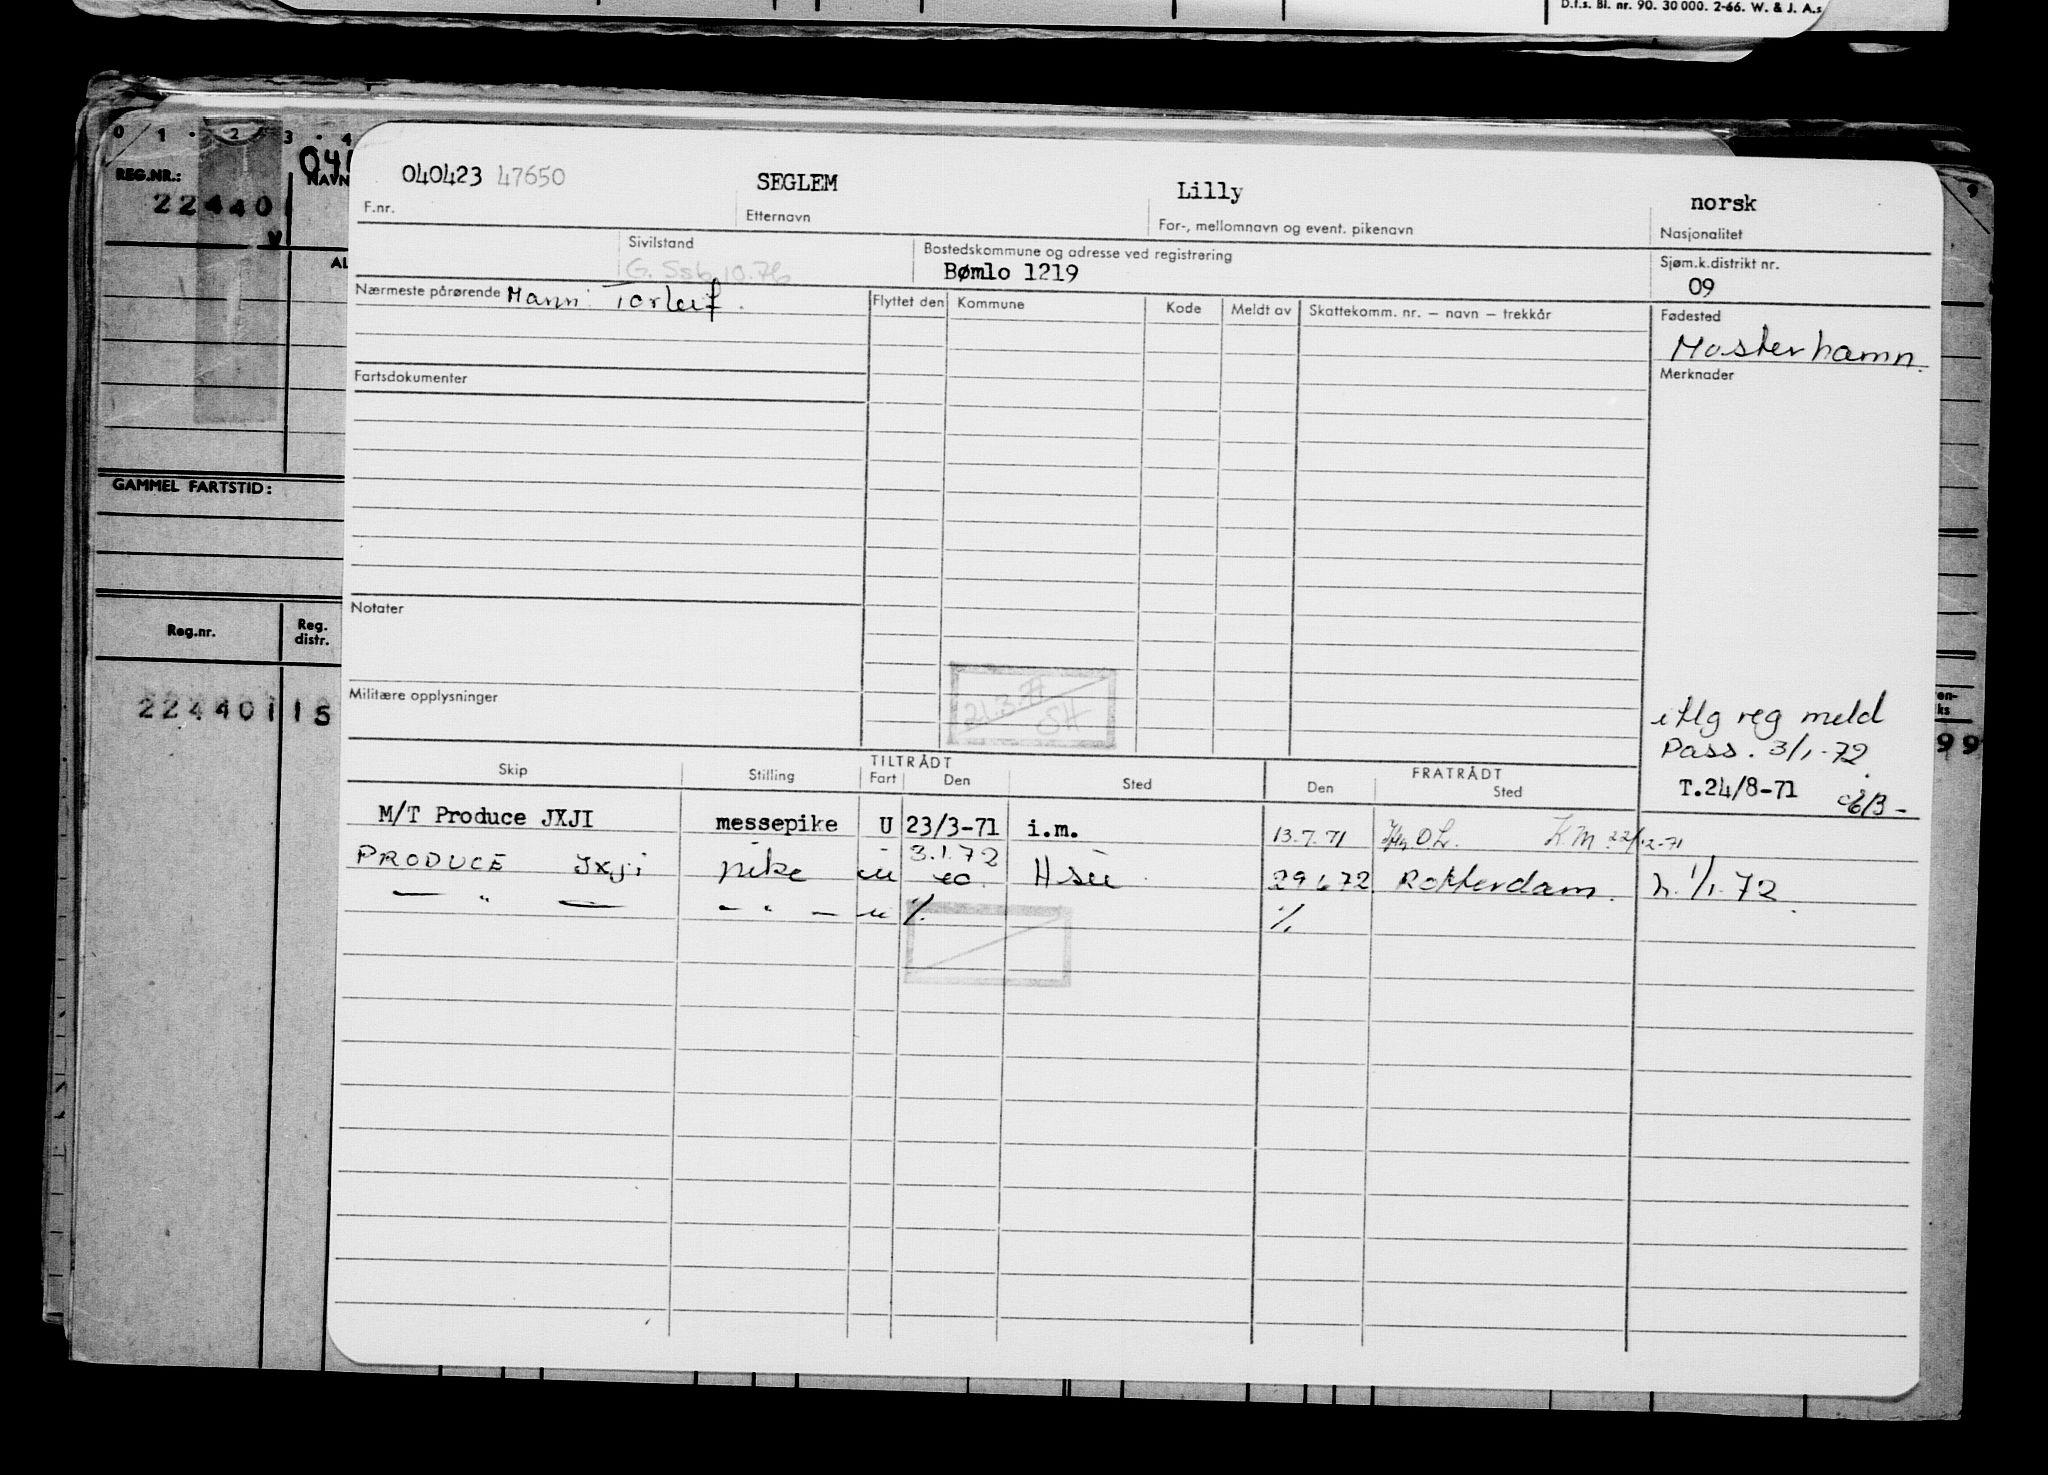 D.f.s. Bl. nr. 90. 30 000. 2-66. W. & J. A.s
0 1 · 2 3 · 4
REG.NR.:
22440
NAVN
AL
GAMMEL FARTSTID:
Reg.nr. Reg. distr.
224401 15
9
99
040423 47650 SEGLEM Lilly norsk
F.nr. Etternavn For-, mellomnavn og event. pikenavn Nasjonalitet
Sivilstand Bostedskommune og adresse ved registrering Sjøm.k.distrikt nr.
G. Ssb 10.76 Bømlo 1219 09
Nærmeste pårørende Mann: Torleif. Flyttet den Kommune Kode Meldt av Skattekomm. nr. — navn — trekkår Fødested
Mosterhamn.
Fartsdokumenter Merknader
Notater
Militære opplysninger
21.3.77
SH
i flg reg meld
Pass. 3/1-72
T.24/8-71
TILTRÅDT FRATRÅDT
Skip Stilling Fart Den Sted Den Sted
M/T Produce JXJI messepike U 23/3-71 i.m. 13.7.71 K.M. 22/12-71
PRODUCE Jxji pike u 3.1.72 29 6 72 Rotterdam. h. 1/1.72
— " — - " - u ·/. ·/.